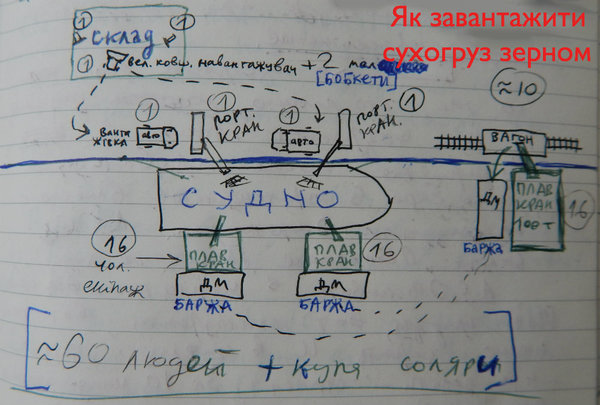 Як завантажити
сухогруз зерном
1 1
СКЛАД
1 вел. ковш. навантажувач + 2 мал
[БОБКЕТИ]
≈10
1 1 1 1
ВАНТА
ЖІВКА
авто
ПОРТ.
КРАН
авто
ПОРТ.
КРАН.
ВАГОН
СУДНО
ДМ
ПЛАВ
КРАН
100 т
16
баржа
16
чол.
екіпаж
ПЛАВ
КРАН
ПЛАВ
КРАН
16
ДМ
ДМ
БАРЖА
БАРЖА
≈60 людей + купа соляри